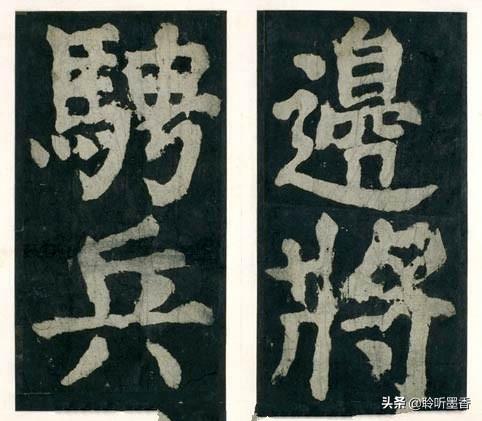 邊將
騁兵
头条 @聆听墨香